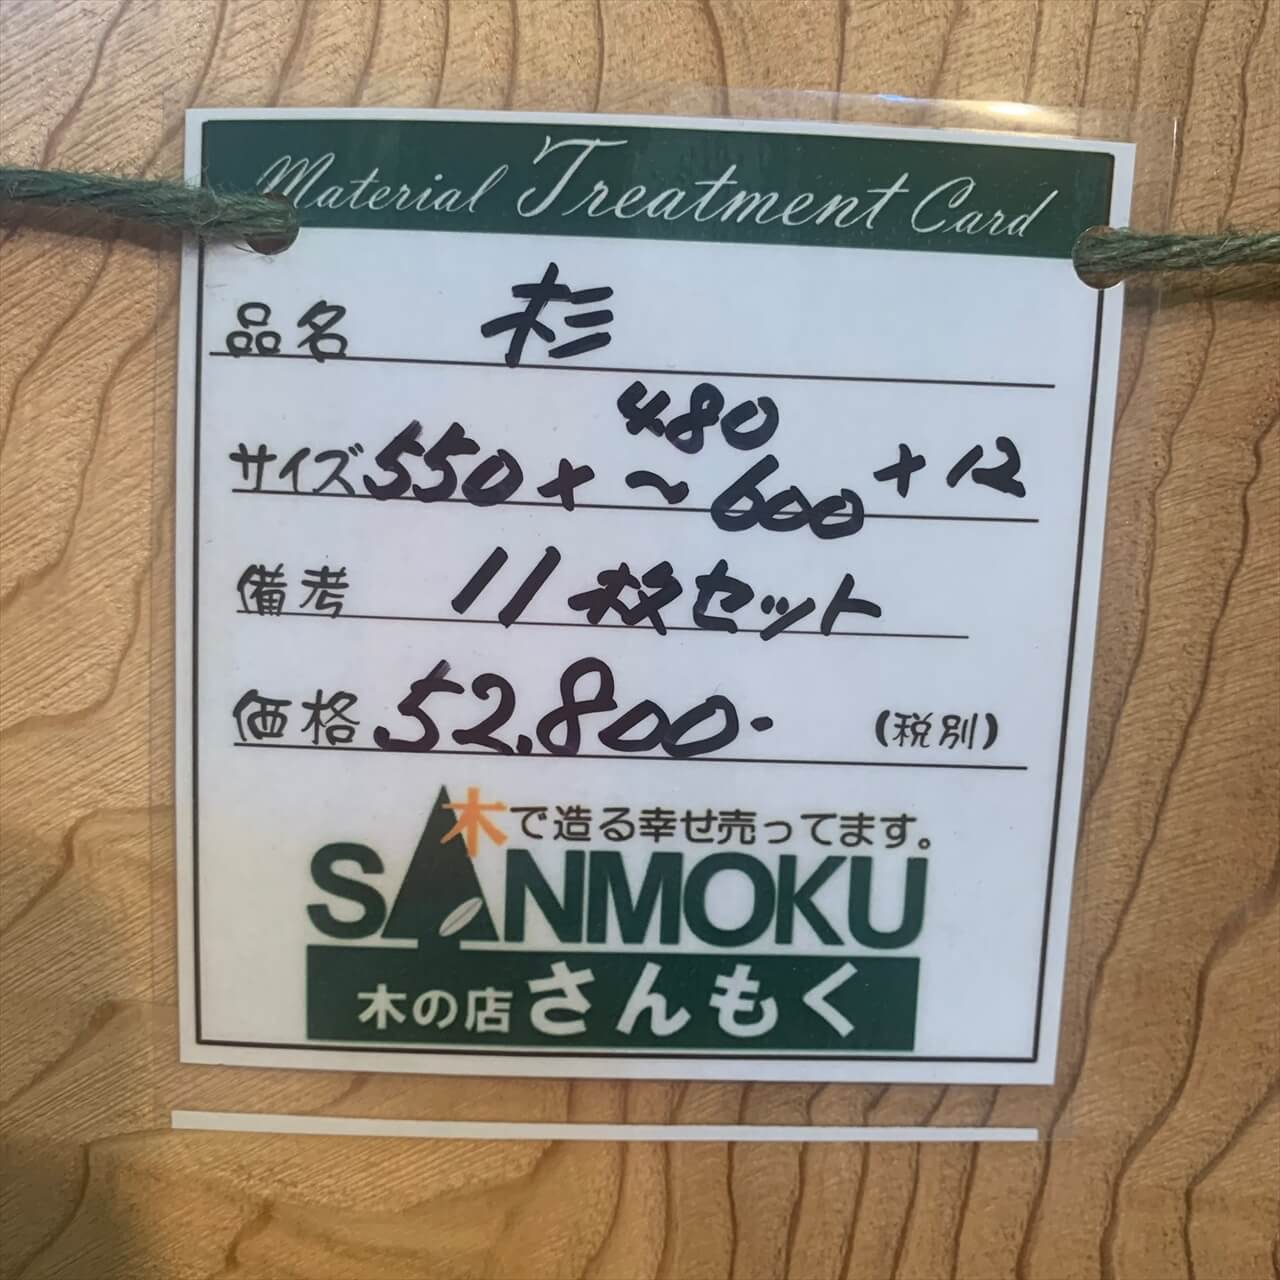 Material Treatment Card
品名 杉
サイズ 550× 480～600 ×12
備考 11枚セット
価格 52,800- (税別)
木で造る幸せ売ってます。
SANMOKU
木の店 さんもく